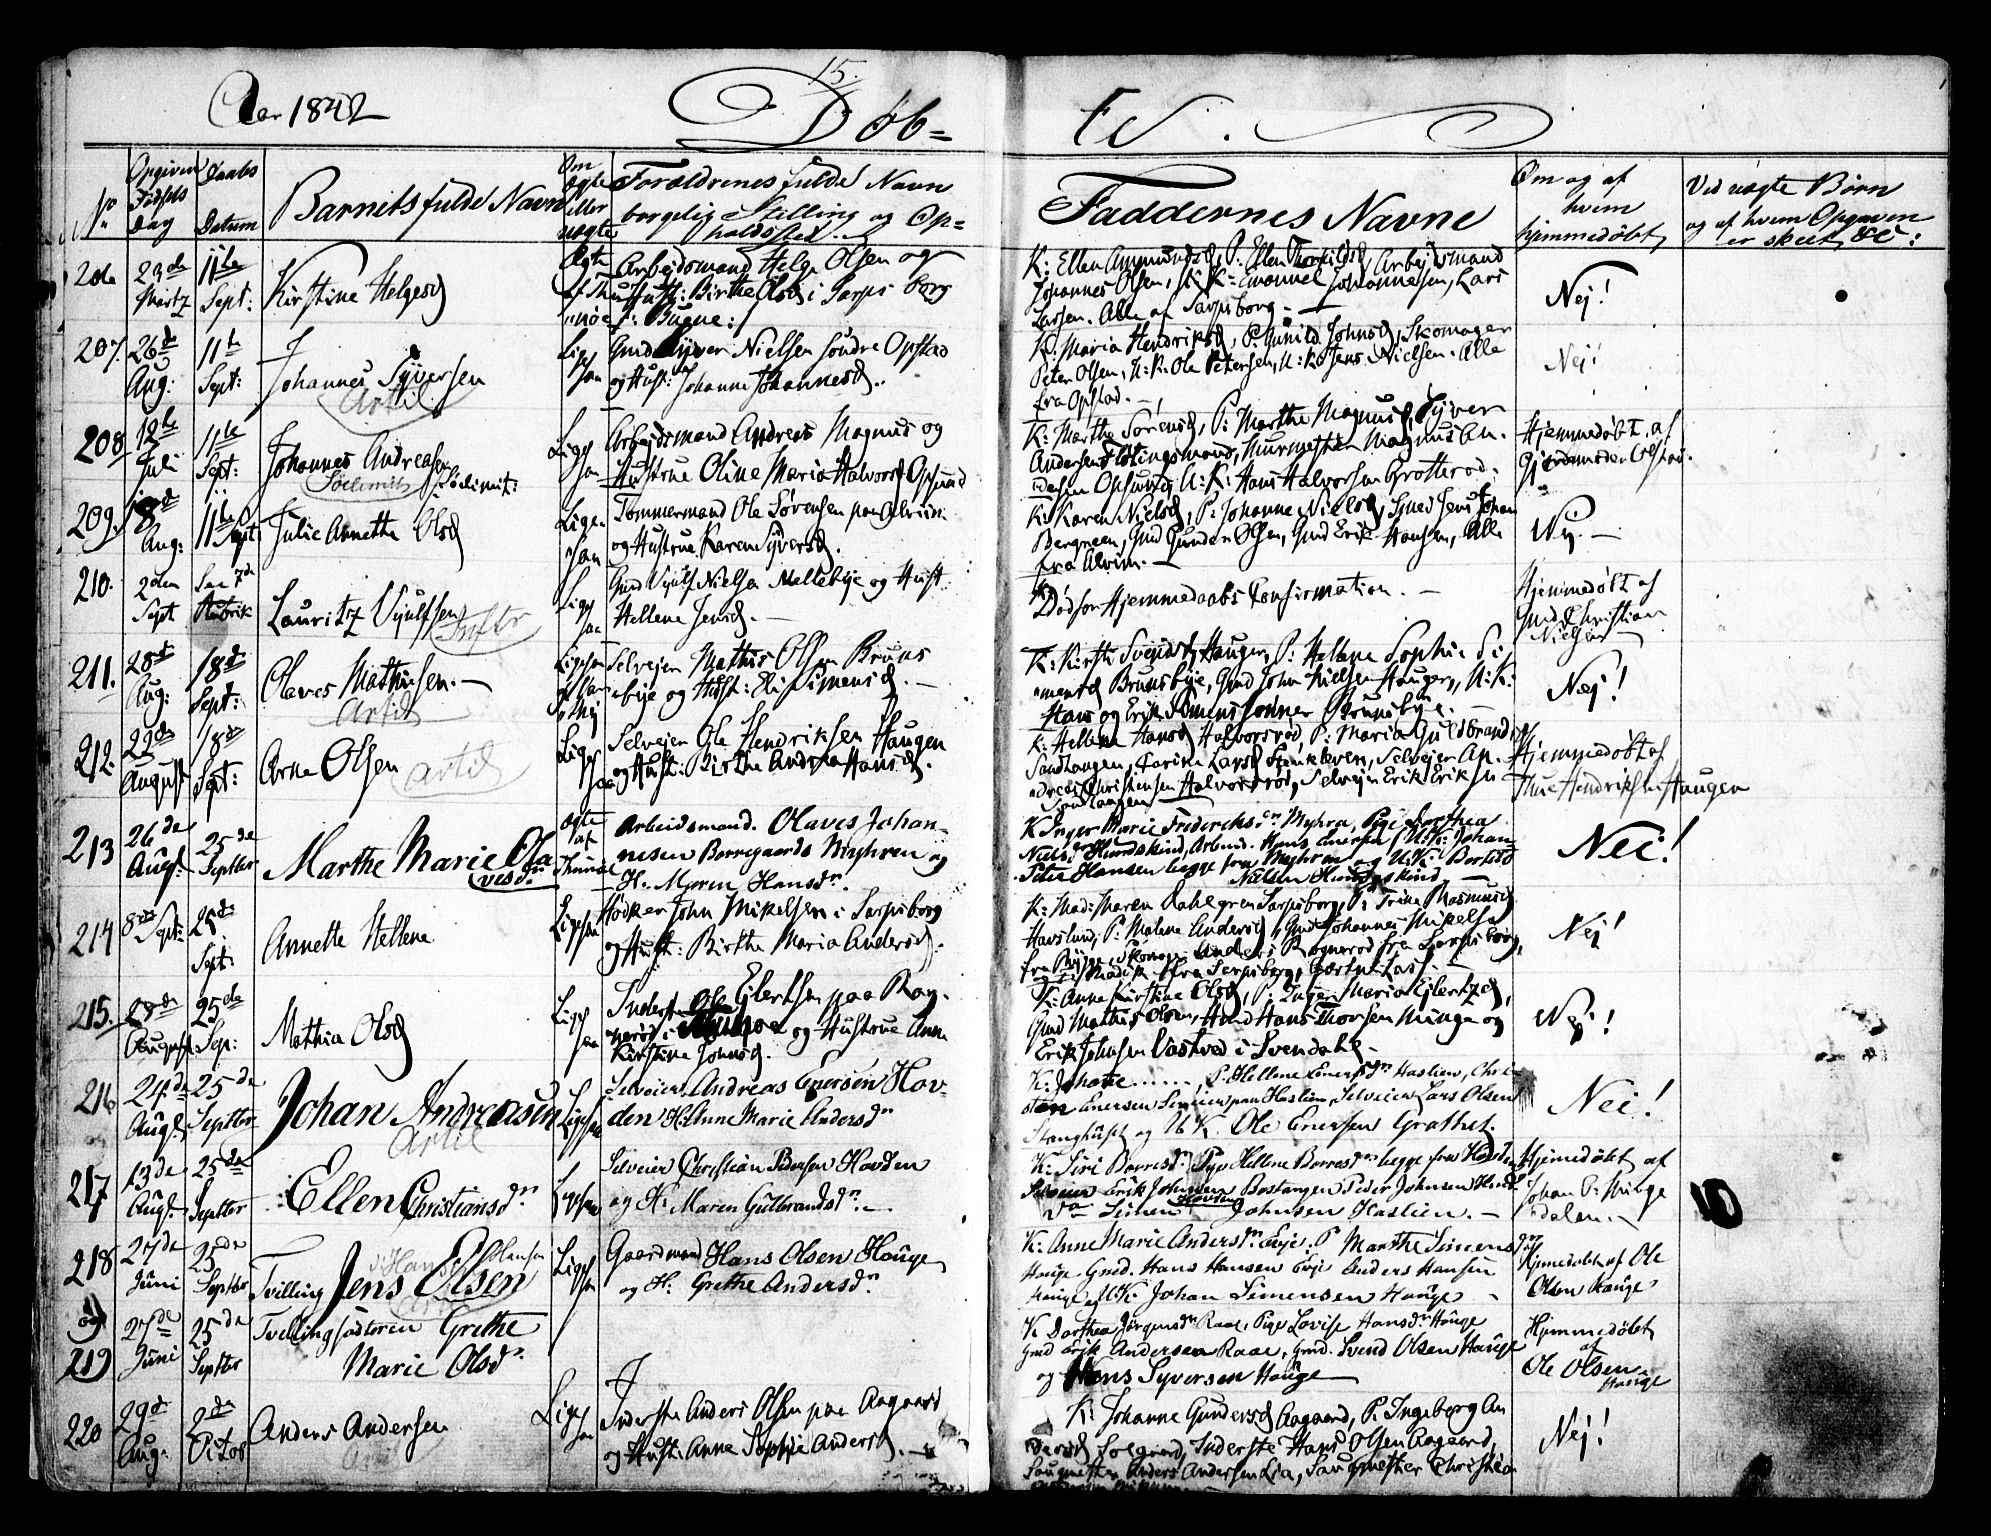 15.
Aar 1842
Døb-
te.
No
Opgiven Fødsels Dag
Daabs Datum
Barnets fulde Navn
Om ægte eller uægte
Forældrenes fulde Navn
borgelig Stilling og Op-
holdssted.
Faddernes Navne
Om og af
hvem
hjemmedøbt
Ved uægte Børn
og af hvem Opgaven
er skeet &c:
206 23de Martz 11te Sept: Kirstine Helgesd
Ægte
Arbejdsmand Helge Olsen og
Hust: Birthe Olsd i Sarpsborg
K: Ellen Ammundsd, P: Ellen Thorkildsd, Arbejdsmand
Johannes Olsen, U: K: Emanuel Johannesen, Lars
Larsen. Alle af Sarpsborg. —
Nej!
207. 26de Aug: 11te Sept: Johannes Syversen
Artil
Ligesaa
Gmd Syver Nielsen søndre Opstad
og Hust: Johanne Johannesd.
K: Maria Hendriksd, P: Gunild Johnsd, Skomager
Peter Olsen, U: K: Ole Petersen, U: K: Jens Nielsen. Alle
fra Opstad. —
Nej!
208 12te Juli 11te Sept: Johannes Andreasen
Ligesaa
Arbejdsmand Andreas Magnus og
Hustrue Oline Maria Halvorsd Opsund
K: Marthe Sørensd, P: Marthe Magnusd, Syver
Andersen Flötningsmand, Murmester Magnus An-
dersen Opsund, U: K: Hans Halvorsen Grotterød.
Hjemmedøbt af
Gjordemoder Olstad.
209. 8de Aug: 11te Sept: Julie Annette Olsd
Ligesaa
Tømmermand Ole Sørensen paa Alvim
og Hustrue Karen Syversd.
K: Karen Nielsd, P: Johanne Nielsd, Smed Jens Johan
Bergreen, Gmd Gunder Olsen, Gmd Erik Hansen, Alle
fra Alvim. —
Nej. —
210. 2den Sept See 7de Rubrik Lauritz Syulfsen
Inftr
Ligesaa
Gmd Syulf Nielsen Mellebye og Hust
Hellene Jensd. —
Død før Hjemmedaabs Confirmation. —
Hjemmedøbt af
Gmd Christian
Nielsen
211. 28de Aug: 18de Sept: Olaves Mathisen. —
Artil
Ligesaa
Selvejer Mathis Olsen Bruns
bye og Hust: Eli Simensd. —
K: Kirsti Svendsd Hauger, P: Hellene Sophie Si-
mensd Brunsbye, Gmd John Nielsen Hauger, U: K:
Hans og Erik Simens sønner Brunsbye. —
Nej!
212. 22de August 18de Sept: Arne Olsen
Artil
Ligesaa
Selvejer Ole Hendriksen Haugen
og Hust: Birthe Andrea Hansd.
K: Hellene Hansd Halvorsrød, P: Maria Guldbrandsd
Sandtangen, Karine Larsd Stenkleven, Selvejer An-
dreas Christensen Halvorsrød, Selvejer Erik Eriksen
Sandtangen
Hjemmedøbt af
Thue Hendriksen Haugen
213 26de Aug: 25de Septber Marthe Marie Ola
vesdr.
ægte
Arbeidsmand. Olaves Johan-
nesen Borregaards Myhren og
H. Maren Hansdr.
K Inger Marie Frederiksdr Myhra, Pige Dorthea
Nielsdr Hundskind, Arbmd. Hans Enersen, U: K: Johan
Peter Hansen begge fra Myhren og U: K: Bertild
Nielsen Hundskind
Nei!
214 8de Sept: 25de Sept: Annette Hellene
Ligesaa
Hødker John Mikelsen i Sarpsborg
og Hust: Birthe Maria Andersd.
K: Mad: Maren Dahlgren Sarpsborg, P: Trine Rasmusd
Havslund, P: Malene Andersd, Gmd Johannes Mikelsen
Nej!
215. 28de August 25de Sep: Mathia Olsd
Ligesaa
Inderst Ole Ejlertsen paa Rag-
nerød i og Hustrue Anne
Kirstine Johnsd.
K: Anne Kirstine Olsd, P: Inger Maria Ejlertzd,
Gmd Mathis Olsen, Hans Thorsen Minge og
Erik Johnsen Vastved i Svendahl —
Nej!
216 24de Aug: 25de Septber Johan Andreassen
Artil
Ligesaa
Selveier Andreas Enersen Hov-
den H. Anne Marie Andersdr
K: Johane ......, P. Hellene Enersdr Haslien, Chri-
sten Enersen Selveier paa Haslien, Selveier Lars Olsen
Stanghuset og U K. Ole Enersen Grathet.
Nei!
217 13de Aug: 25de Septber Ellen Christiansdr.
Ligesaa
Selveier Christian Pedersen Hovden
og H. Maren Gulbrandsdr. —
K: Siri Borresdr, Pige Hellene Borresdr begge fra Hovden
Selveier Erik Johnsen Bostangen Peder Johnsen
Hovden
Simen Johnsen Haslien. —
Hjemedøbt af
Johan P. Minge
dalen. —
218 27de Juni 25de Septber Tvilling Jens Olsen
Hansen
Ligesaa
Gaardmand Hans Olsen Hauge
og H. Grethe Andersdr
K: Anne Marie Andersdr Evje. P Marthe Simensdr
Hauge Gmd. Hans Hansen Evje Anders Hansen
Hauge og U K: Johan Simensen Hauge —
Hjemedøbt af Ole
Olsen Hauge
og
219 27de Juni 25de Septber Tvillingsøsteren Grethe
Marie Olsdr.
K Dorthea Jørgensdr Raae, Pige Lovise Hansdr Hauge
Gmd Erik Andersen Raae, Gmd. Svend Olsen Hauge
og Hans Syversen Hauge
Hjemmedøbt
af
Ole Olsen
Hauge
220 29de Aug: 2de Octob Anders Andersen
Ligesaa
Inderste Anders Olsen paa Aagaard
og Hust: Anne Sophie Andersd. —
K: Johanne Gundersd Aagaard, P. Ingeborg An
dersd Solgaard, Inderste Hans Olsen Aagaard,
Saugmester Anders Andersen Lia, Saugmester Christian
Nej!
10